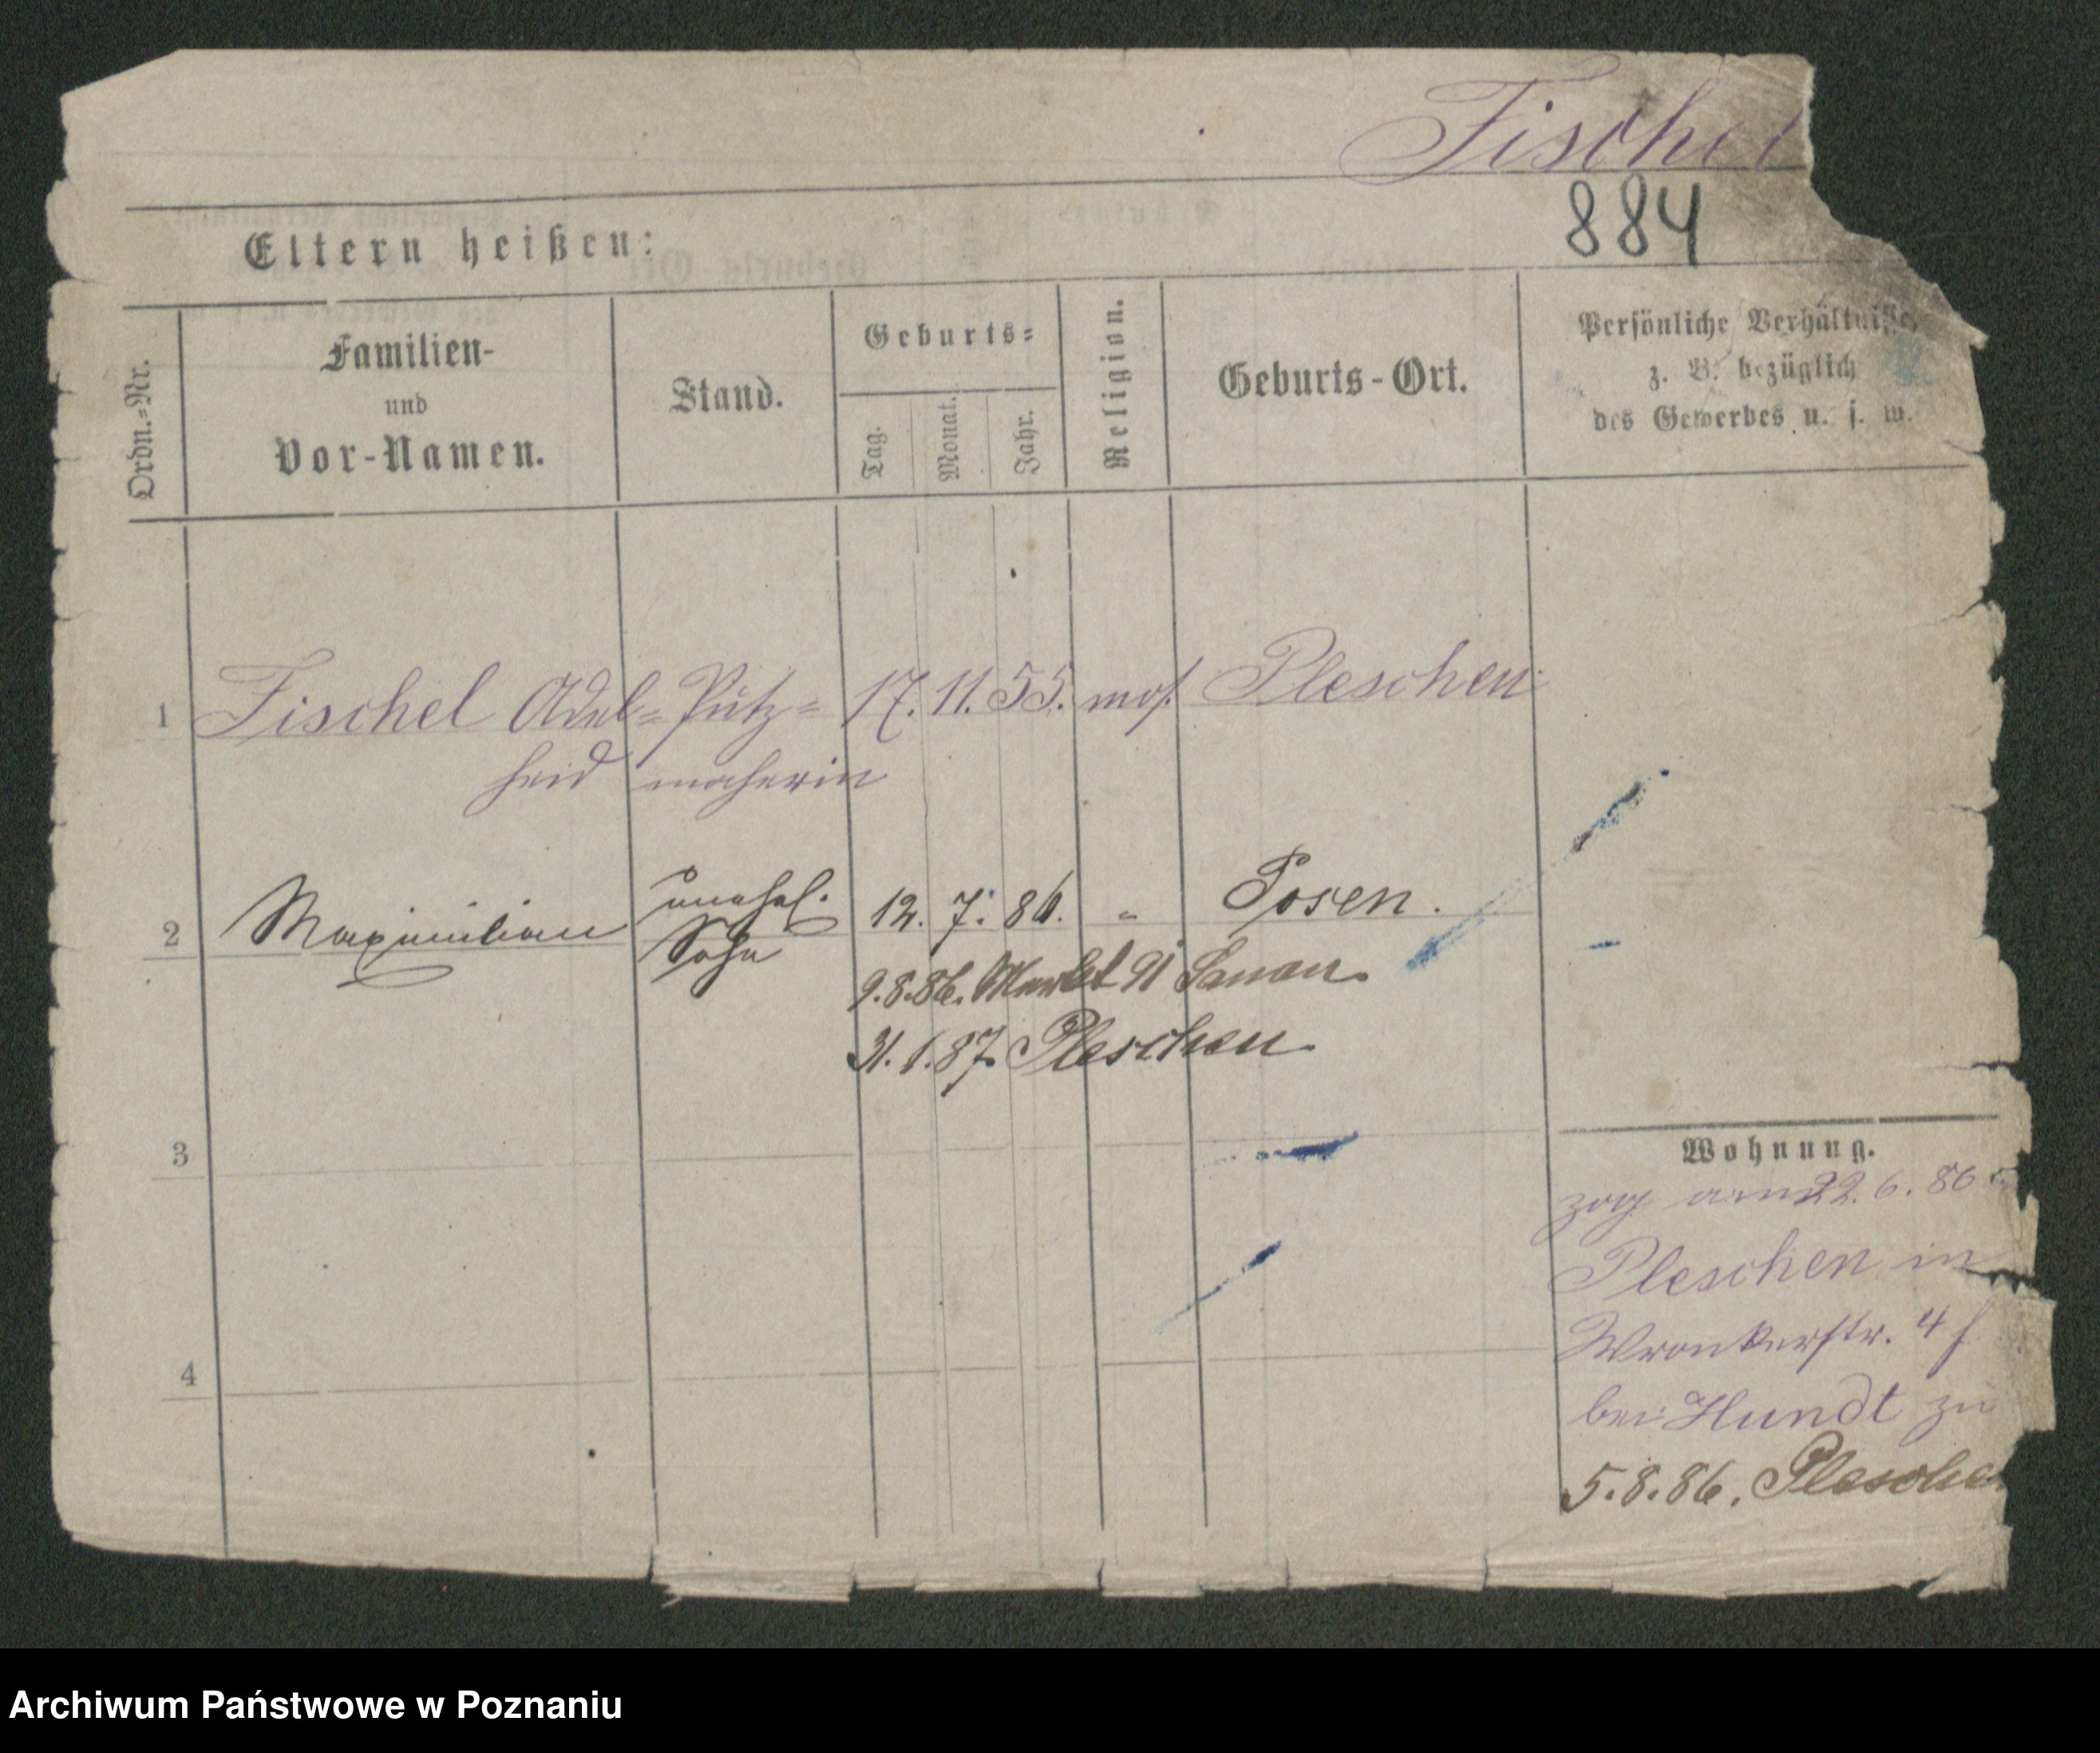 Fischel
884
Eltern heißen:
Ordn.-Nr.
Familien-
und
Vor-Namen.
Stand.
Geburts-
Tag.
Monat.
Jahr.
Religion.
Geburts-Ort.
Persönliche Verhältnisse,
z. B. bezüglich
des Gewerbes u. s. w.
1 Fischel Adel= Putz= 17. 11. 55. mos. Pleschen
heid macherin
2 Maximilian unehel. Sohn 12. 7. 86. " Posen.
9.8.86. Markt 91
31.1.87. Pleschen
3
4
Wohnung.
zog am 22. 6. 86
Pleschen in
Wronkerstr. 4
bei Hundt zu
5.8.86. Pleschen
Archiwum Państwowe w Poznaniu